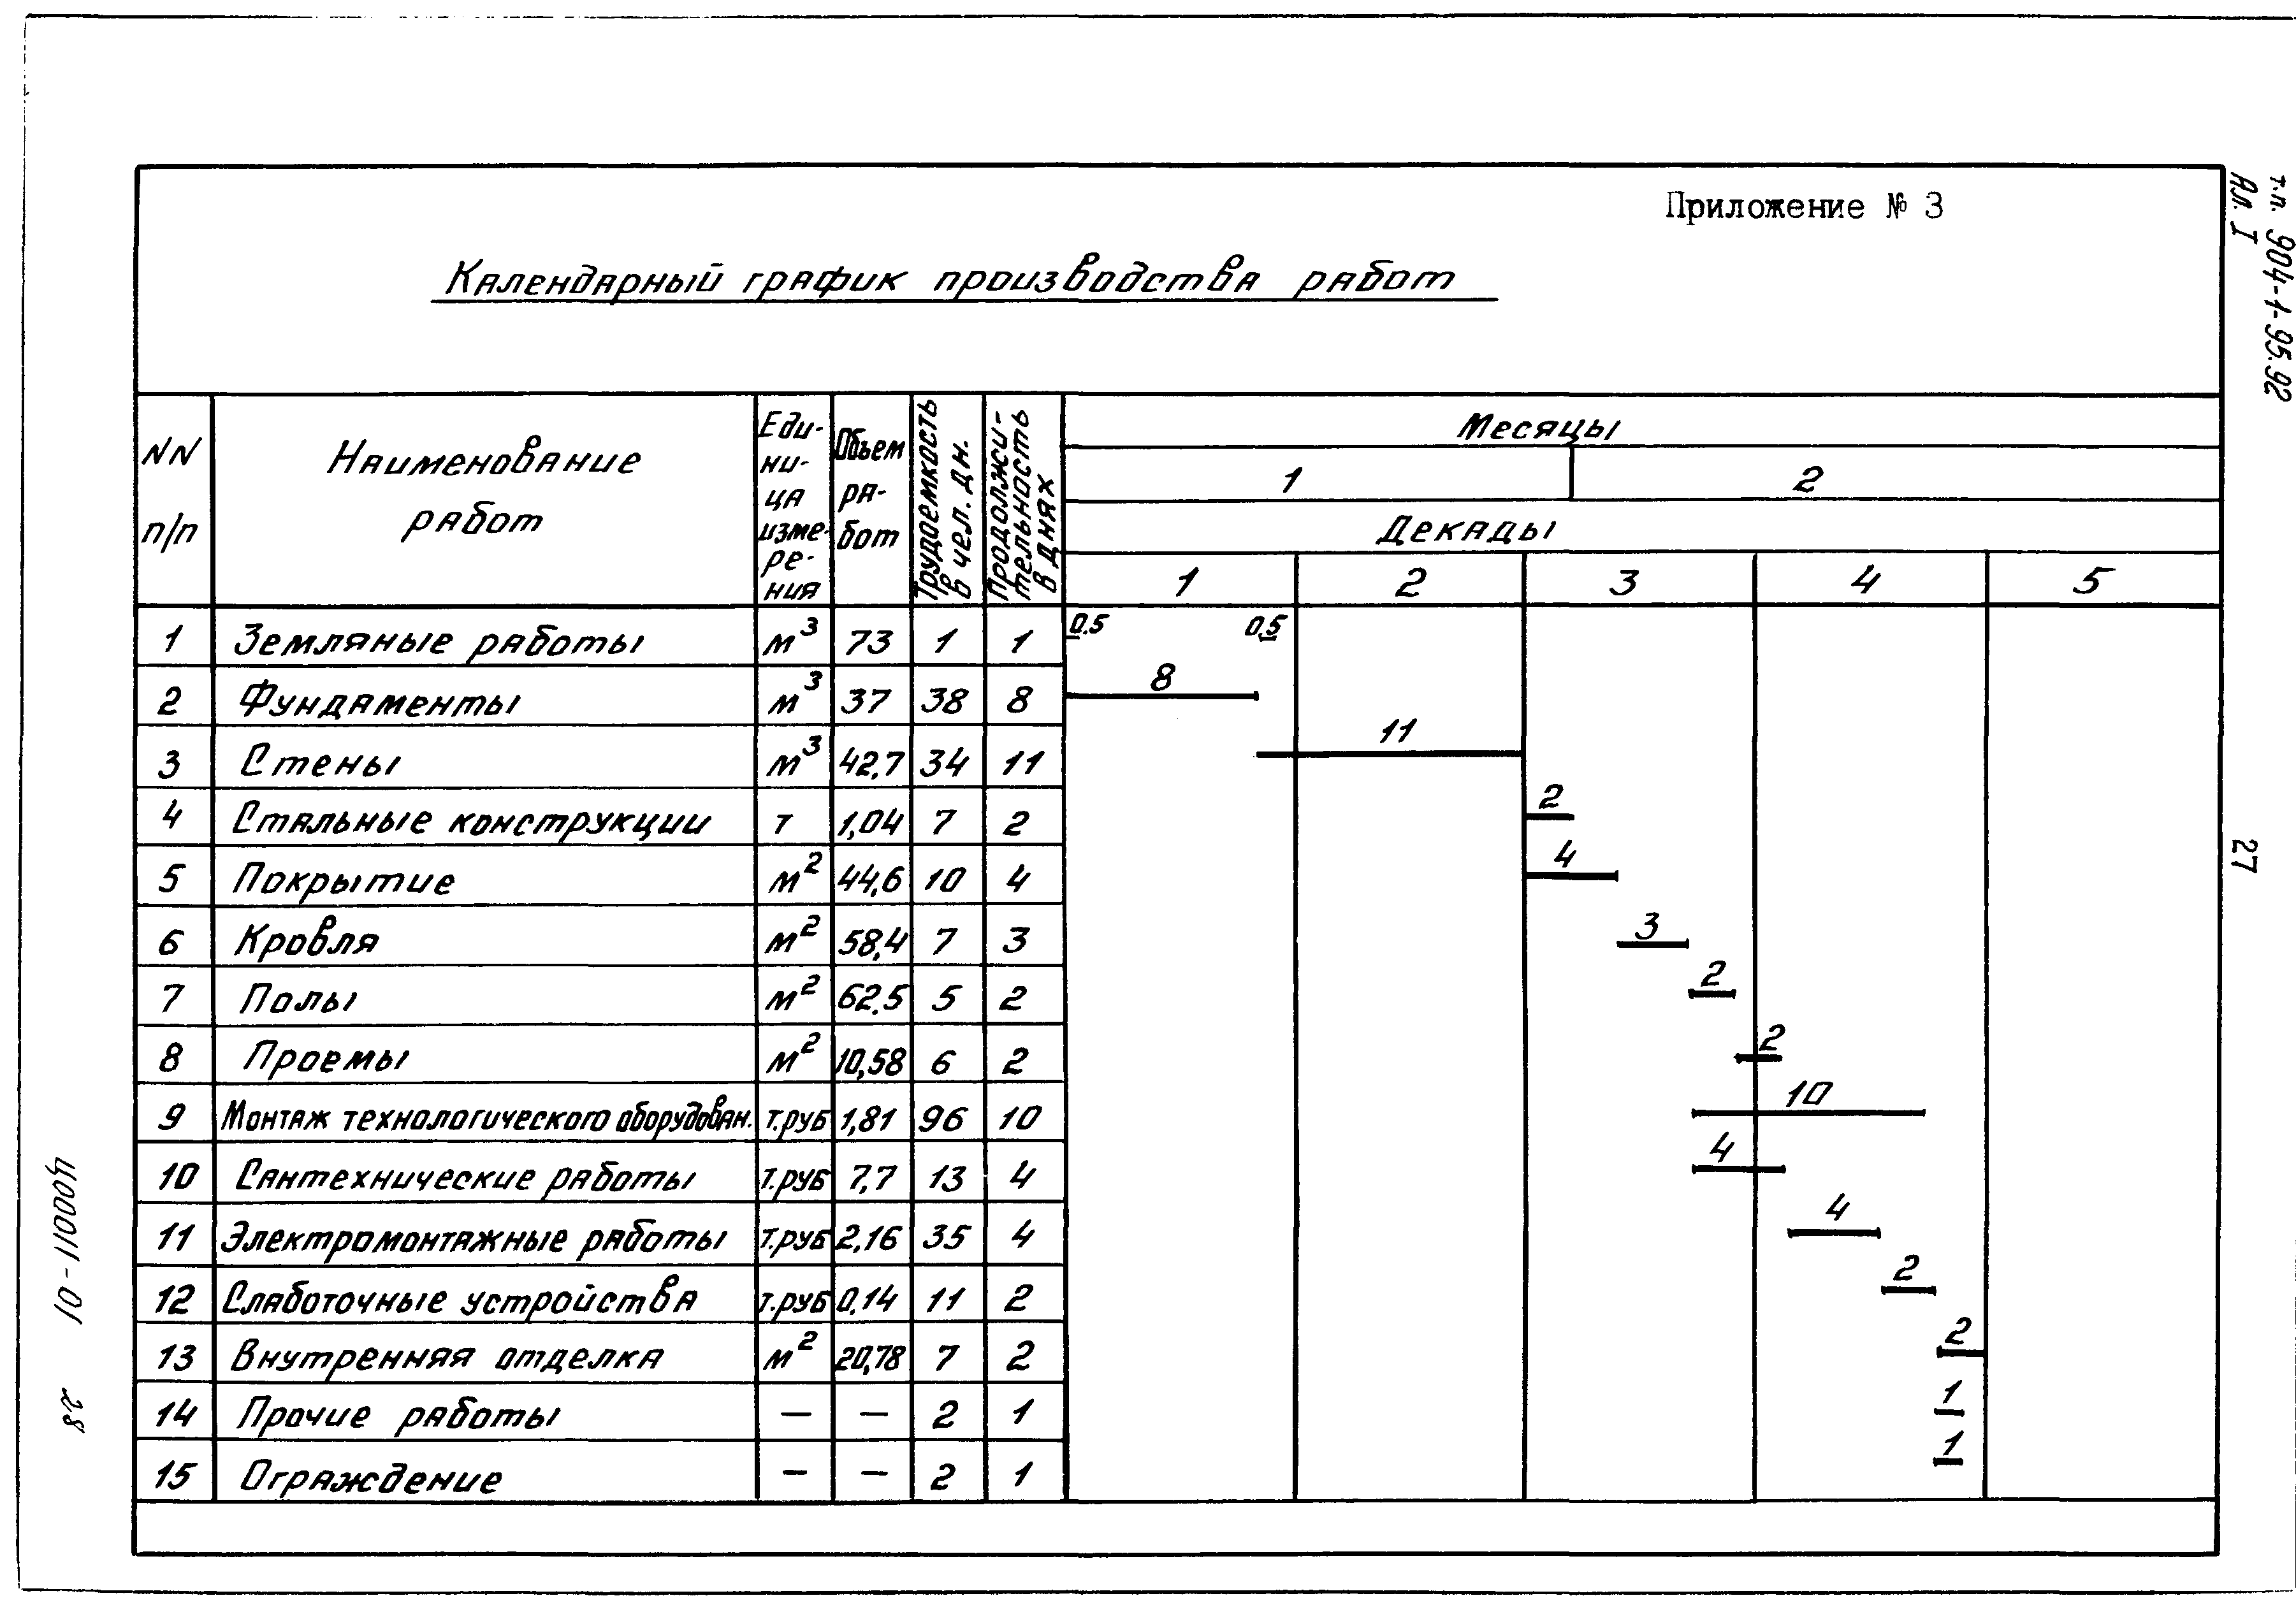 Приложение № 3
Календарный график производства работ
т.п. 904-1-95.92
Ал. I
NN п/п
Наименование работ
Еди-ни-ца изме-ре-ния
Объем ра-бот
Трудоемкость в чел. дн.
Продолжи-тельность в днях
Месяцы
1 2
Декады
1 2 3 4 5
1 Земляные работы м³ 73 1 1 0.5 0.5
2 Фундаменты м³ 37 38 8 8
3 Стены м³ 42,7 34 11 11
4 Стальные конструкции т 1,04 7 2 2
5 Покрытие м² 44,6 10 4 4
6 Кровля м² 58,4 7 3 3
7 Полы м² 62,5 5 2 2
8 Проемы м² 10,58 6 2 2
9 Монтаж технологического оборудован. т.руб 1,81 96 10 10
10 Сантехнические работы т.руб 7,7 13 4 4
11 Электромонтажные работы т.руб 2,16 35 4 4
12 Слаботочные устройства т.руб 0,14 11 2 2
13 Внутренняя отделка м² 20,78 7 2 2
14 Прочие работы — — 2 1 1
15 Ограждение — — 2 1 1
27
Ц00011-01 28